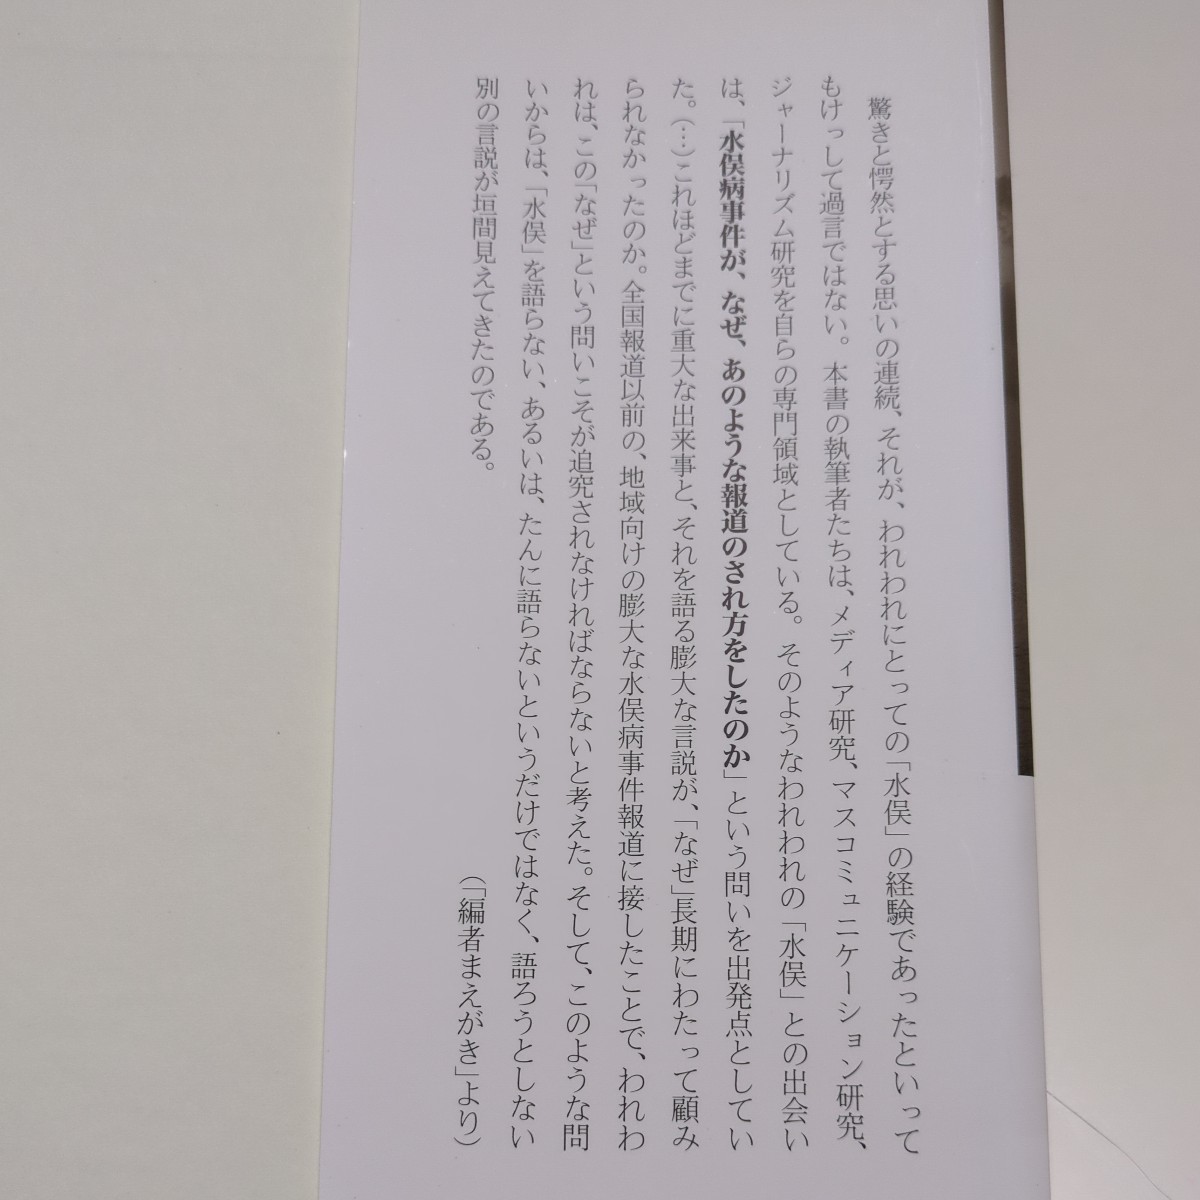 驚きと愕然とする思いの連続、それが、われわれにとっての「水俣」の経験であったといって
もけっして過言ではない。本書の執筆者たちは、メディア研究、マスコミュニケーション研究、
ジャーナリズム研究を自らの専門領域としている。そのようなわれわれの「水俣」との出会い
は、「水俣病事件が、なぜ、あのような報道のされ方をしたのか」という問いを出発点としてい
た。(…)これほどまでに重大な出来事と、それを語る膨大な言説が、「なぜ」長期にわたって顧み
られなかったのか。全国報道以前の、地域向けの膨大な水俣病事件報道に接したことで、われわ
れは、この「なぜ」という問いこそが追究されなければならないと考えた。そして、このような問
いからは、「水俣」を語らない、あるいは、たんに語らないというだけではなく、語ろうとしない
別の言説が垣間見えてきたのである。
(「編者まえがき」より)